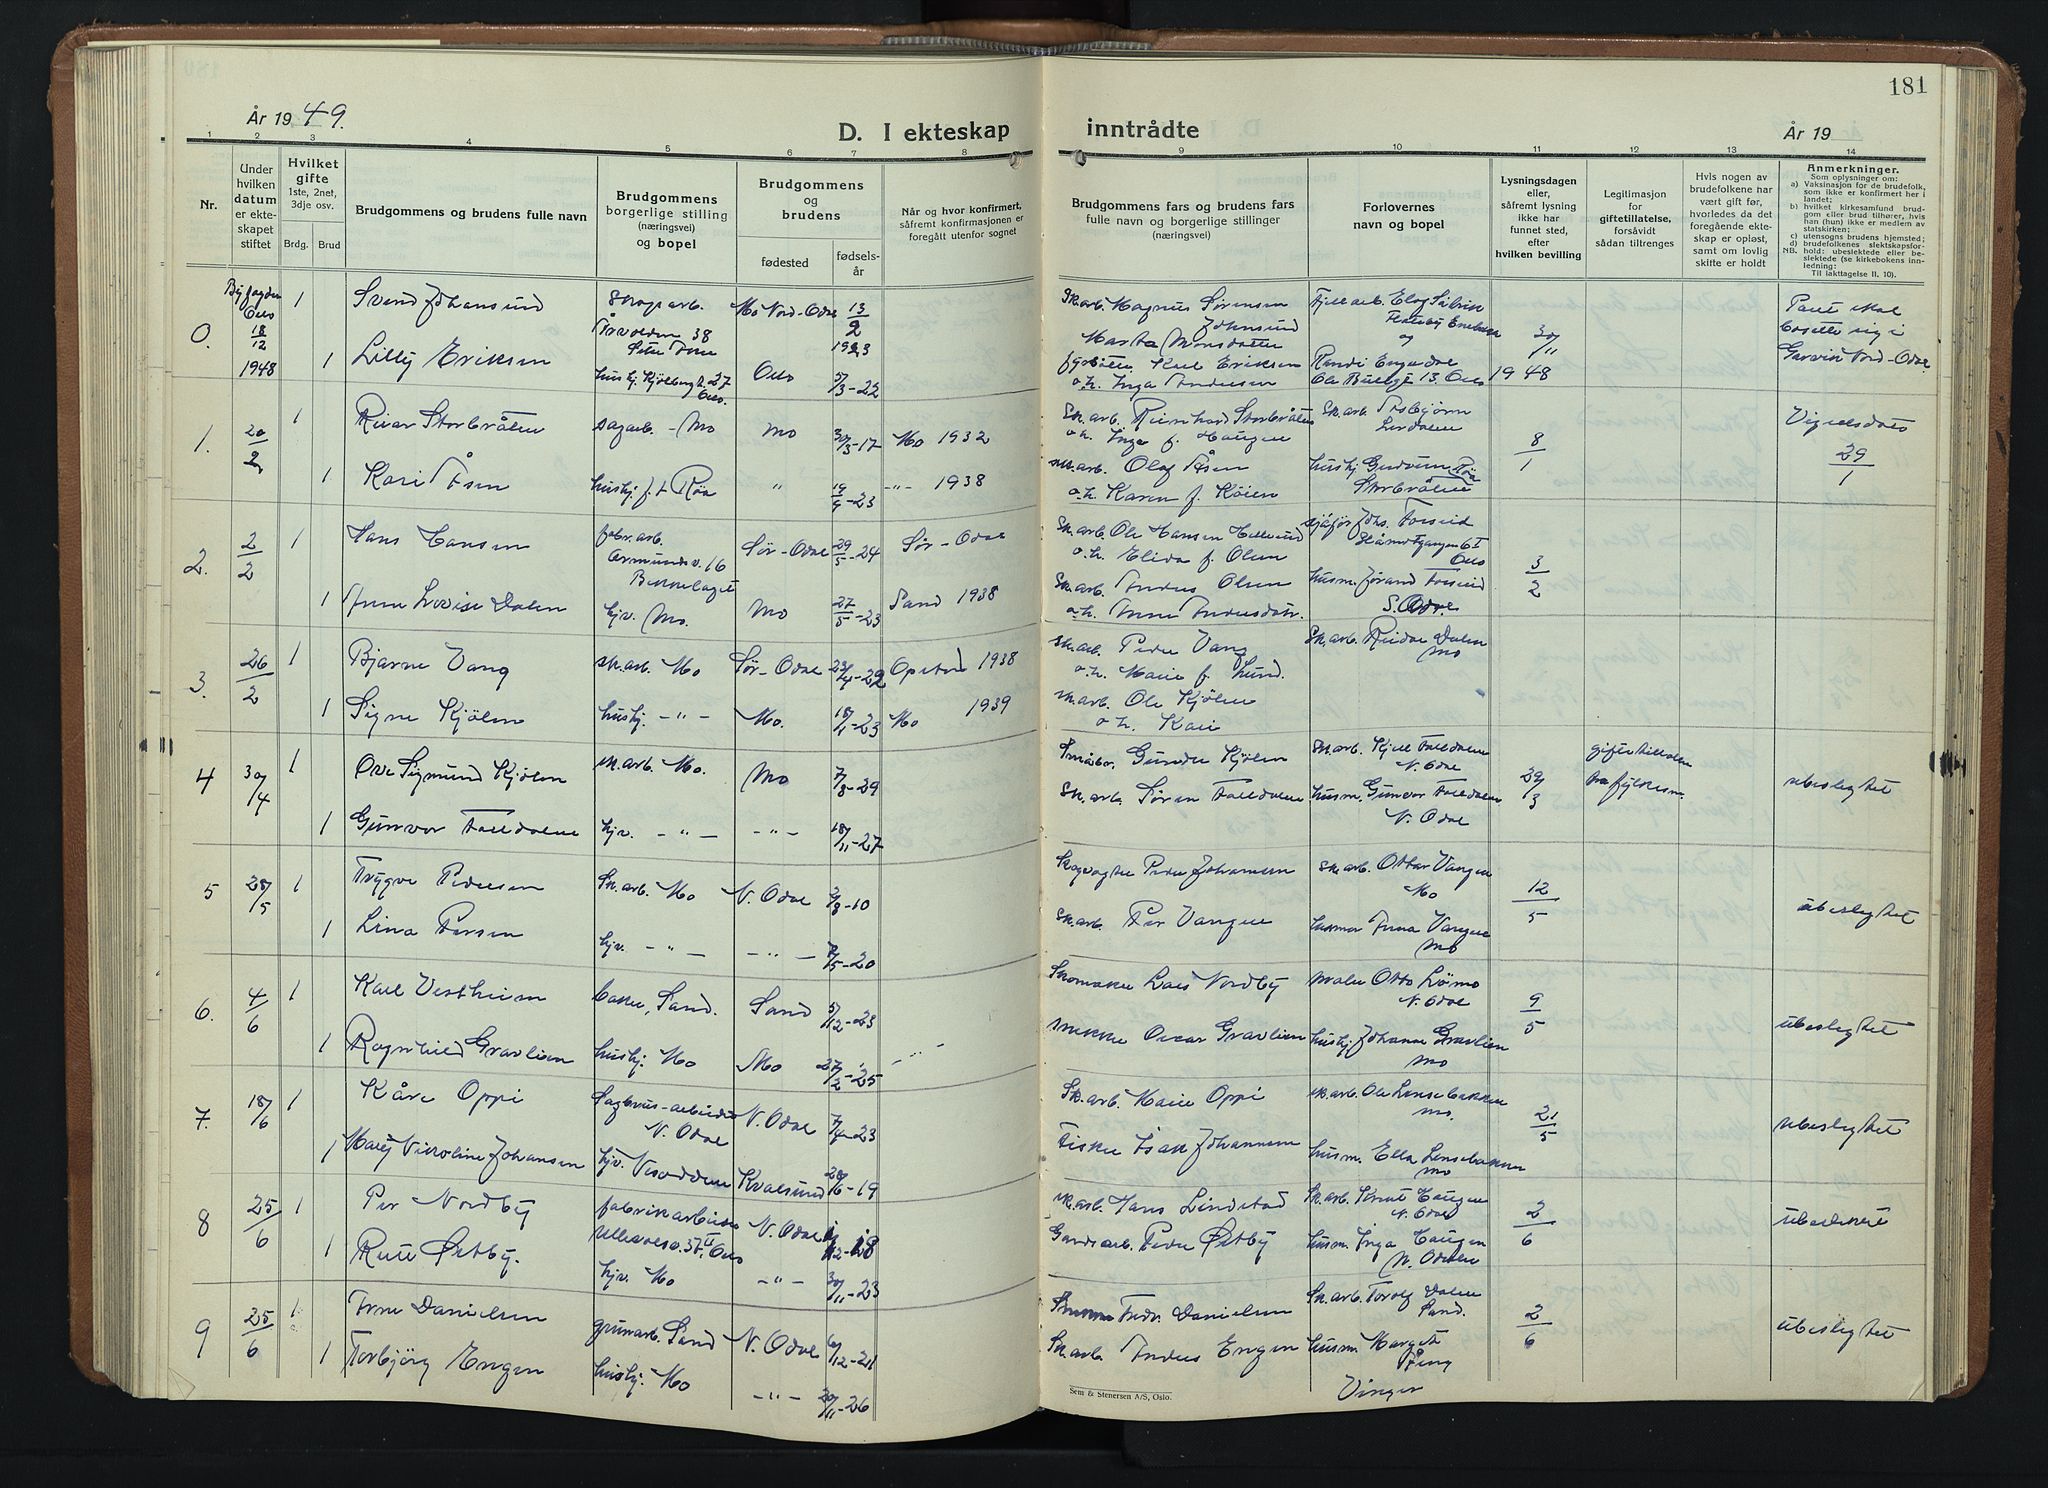 181
År 1949.
D. I ekteskap
inntrådte
År 19
1 2 3 4 5 6 7 8 9 10 11 12 13 14
Nr.
Under
hvilken
datum
er ekte-
skapet
stiftet
Hvilket
gifte
1ste, 2net,
3dje osv.
Brdg. Brud
Brudgommens og brudens fulle navn
Brudgommens
borgerlige stilling
(næringsvei)
og bopel
Brudgommens
og
brudens
fødested
fødsels-
år
Når og hvor konfirmert,
såfremt konfirmasjonen er
foregått utenfor sognet
Brudgommens fars og brudens fars
fulle navn og borgerlige stillinger
(næringsvei)
Forlovernes
navn og bopel
Lysningsdagen
eller,
såfremt lysning
ikke har
funnet sted,
efter
hvilken bevilling
Legitimasjon
for
giftetillatelse,
forsåvidt
sådan tiltrenges
Hvis nogen av
brudefolkene har
vært gift før,
hvorledes da det
foregående ekte-
skap er opløst,
samt om lovlig
skifte er holdt
Anmerkninger.
Som oplysninger om:
a) Vaksinasjon for de brudefolk,
som ikke er konfirmert her i
landet;
b) hvilket kirkesamfund brud-
gom eller brud tilhører, hvis
han (hun) ikke er medlem av
statskirken;
c) utensogns brudens hjemsted;
d) brudefolkenes slektskapsfor-
NB. hold: ubeslektede eller be-
slektede (se kirkebokens inn-
ledning:
Til iakttagelse II, 10).
0. Oslo 18/12 1948 1 Svend Johansund Mo Nord-Odal 13/2 1923
Sk.arb. Magnus Sørensen
Johnsund
30/11 1948
1 Lilly Eriksen Oslo 5/3-22
Karl Eriksen
o.h. Inga Andersen
Oslo
1. 20/2 1 Reier Storbråten sagarb. Mo Mo 30/3-17 Mo 1932
Sk.arb. Reinhard Storbråten
o.h. Inga f. Haugen
Sk.arb. Asbjørn
8/1
Vigselsdato
29/1
1 Kari Åsen hushj. f.t. Røa " 19/4-23 -"- 1938
sk.arb. Olaf Åsen
o.h. Karen f. Køien
hushj. Gudrun
Storbråten
2. 2/2 1 Hans Hansen fabr.arb.
16
Bekkelaget
Sør-Odal 29/5-24 Sør-Odal
Sk.arb. Ole Hansen
o.h. Elida f. Olsen
Oslo
3/2
1 Anna Lovise Dalen hjv. Mo. Mo 27/5-23 Sand 1938
Sk.arb. Anders Olsen
o.h. Anne Andersdatr.
S. Odal
3. 26/2 1 Bjarne Vang sk.arb. Mo Sør-Odal Opstad 1938
sk.arb. Peder Vang
o.h. Marie f. Lund.
Sk.arb. Reidar Dalen
Mo
1 Signe Kjølen hushj. -"- Mo. 18/1-23 Mo 1939
sk.arb. Ole Kjølen
o.h. Kari
4 30/4 1 Ove Sigmund Kjølen sk.arb. Mo. Mo 7/8-29
Småbr. Gunder Kjølen
sk.arb. Kjell Falldalen
N. Odal
29/3
fra fylkesm.
ubeslegtet
1 Gunvor Falldalen hjv. -"- -"- 18/11-27
Sk.arb. Søren Falldalen
husm. Gunvor Falldalen
N. Odal
5 28/5 1 Trygve Pedersen Sk.arb. Mo N. Odal 2/8-10
Peder Johannesen
sk.arb. Ottar Vangen
Mo
12/5
ubeslegtet
1 Lina Persen hjv. -"- -"- 7/5-20
sk.arb. Per Vangen
Anna Vangen
Mo
6. 4/6 1 Karl Vestheim baker, Sand. Sand 5/12-23
Skomaker Lars Nordby
maler Otto Lømo
N. Odal
9/5
ubeslegtet
1 Ragnhild Gravlien hushj. Mo Mo 27/2-25 -"-
snekker Oscar Gravlien
hushj. Johanne Gravlien
Mo
7. 18/6 1 Kåre Oppi Sagbruks-arbeider
N. Odal
N. Odal 7/4-23
Sk.arb. Marie Oppi
sk.arb. Ole Linsebakken
Mo.
21/5
ubeslegtet
1 Mary Nicoline Johansen hjv. Nesodden Kvalsund 28/6-19
Fisker Isak Johannesen
husm. Ella Linsebakken
Mo
8 25/6 1 Per Nordby fabrikarbeider
Ullevålsv. 37 II Oslo
N. Odal
sk.arb. Hans Lindstad
Sk.arb. Knut Haugen
N. Odal
2/6
ubeslektet
1 Ruth Østby. hjv. Mo -"- 30/11-23
Gårdsarb. Peder Østby
husm. Inga Haugen
N. Odalen
9 25/6 1 Arne Danielsen gruvearb. Sand N. Odal 6/12-21
Fredr. Danielsen
Sk.arb. Torolf Dalen
Sand.
2/6
ubeslegtet
1 Torbjørg Engen hushj. Mo -"- 20/11-26
Sk.arb Anders Engen
husm. Margit
Vinger
Sem & Stenersen A/S, Oslo.